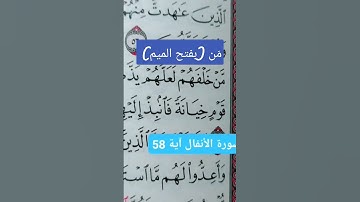 ٱلَّذِينَ عَٰهَدتَّ مِنْهُمْ
مَن (بفتح الميم)
مَّنْ خَلْفَهُمْ لَعَلَّهُمْ يَذَّ
قَوْمٍ خِيَانَةً فَٱنۢبِذْ إِلَيْهِ
سورة الأنفال آية 58
ٱلَّذِينَ
وَأَعِدُّوا۟ لَهُم مَّا ٱسْتَ